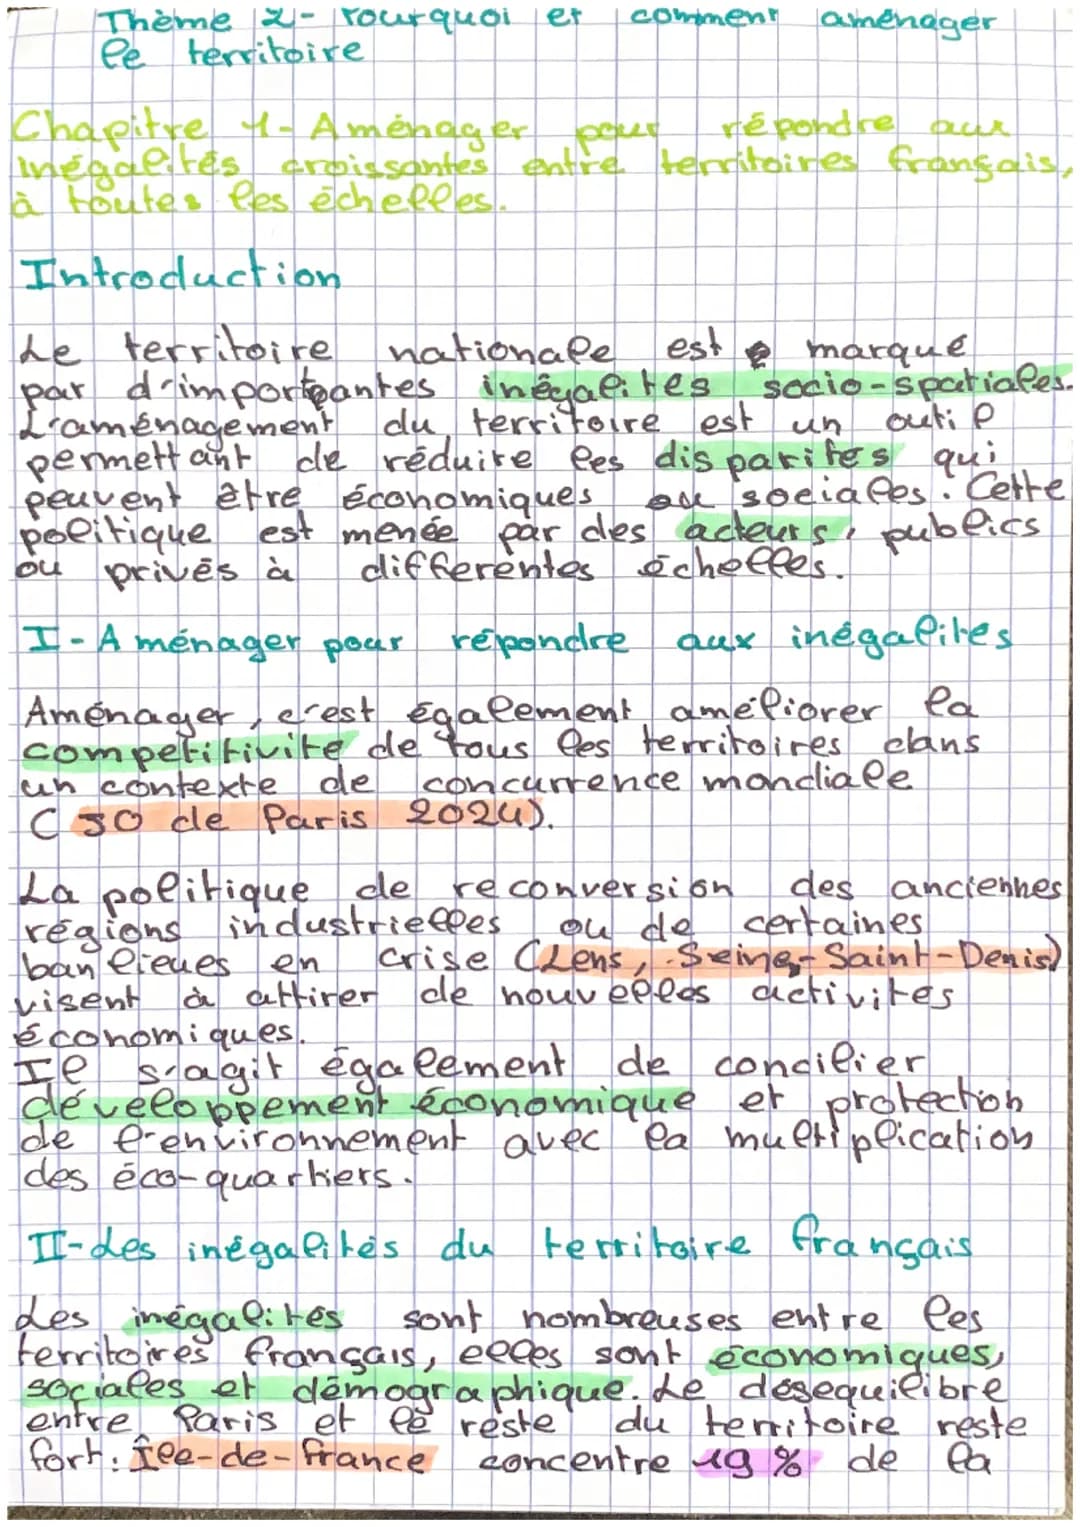 Thème 2- Pourquoi et comment aménager
le territoire
Chapitre 1- Aménager pour répondre aux
inégalités croissantes entre territoires français,
à toutes les échelles.
Introduction
Le territoire nationale est marqué
par d'importantes inégalités socio-spatiales.
L'aménagement du territoire est un outil
permettant de réduire les disparités qui
peuvent être économiques ou sociales. Cette
politique est menée par des acteurs, publics
ou privés à differentes échelles.
I-Aménager pour répondre aux inégalités
Aménager, c'est également améliorer la
compétitivité de tous les territoires dans
un contexte de concurrence mondiale
(JO de Paris 2024).
La politique de reconversion des anciennes
régions industrielles ou de certaines
banlieues en crise (Lens, Seine-Saint-Denis)
visent à attirer de nouvelles activités
économiques.
Il s'agit également de concilier
développement économique et protection
de l'environnement avec la multiplication
des éco-quartiers.
II-Les inégalités du territoire français
Les inégalités sont nombreuses entre les
territoires français, elles sont économiques,
sociales et démographique. Le désequilibre
entre Paris et le reste du territoire reste
fort: Île-de-france concentre 19 % de la